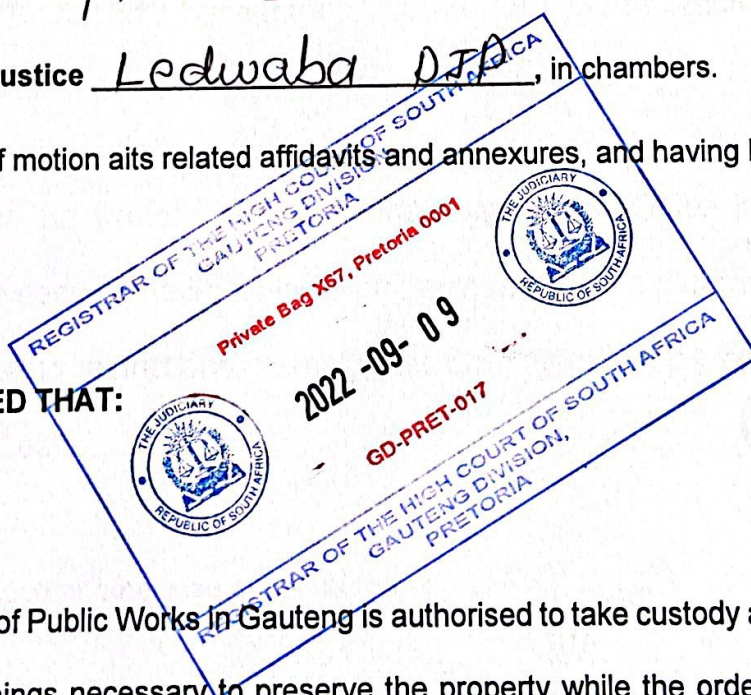 ustice Ledwaba DJP, in chambers.
f motion aits related affidavits and annexures, and having
REGISTRAR OF THE HIGH COURT OF SOUTH AFRICA
GAUTENG DIVISION
PRETORIA
Private Bag X67, Pretoria 0001
THE JUDICIARY
REPUBLIC OF SOUTH AFRICA
2022-09-09
ED THAT:
GD-PRET-017
THE JUDICIARY
REPUBLIC OF SOUTH AFRICA
REGISTRAR OF THE HIGH COURT OF SOUTH AFRICA
GAUTENG DIVISION,
PRETORIA
of Public Works in Gauteng is authorised to take custody
ings necessary to preserve the property while the orde